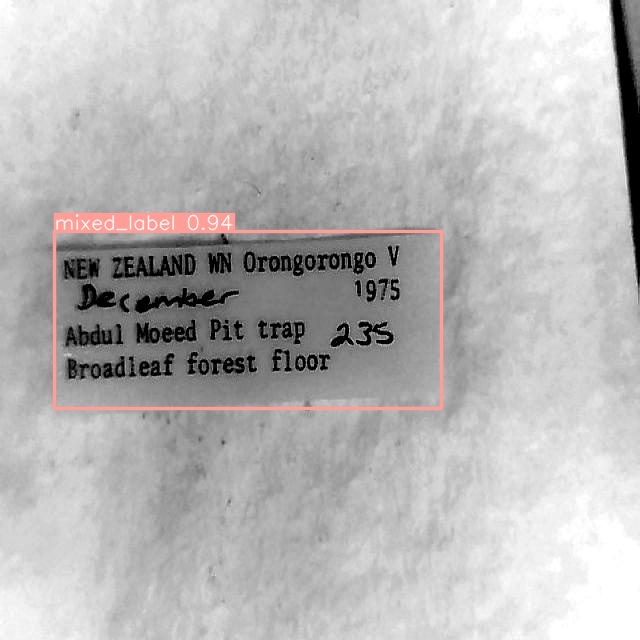 mixed_label 0.94
NEW ZEALAND WN Orongorongo V
December 1975
Abdul Moeed Pit trap 235
Broadleaf forest floor